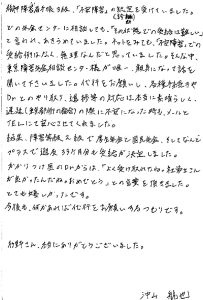 精神障害者手帳3級、「不安障害」の認定を受けていました。
(診断)
どの社労士に相談しても、「その状態での受給は難しい」
と言われ、あきらめていました。ネットをみても、「不安障害」での
受給例はなく、無理なんだと思っていました。そんな中、
東京障害年金相談センター様が唯一、親身になって話を
聞いて下さいました。代行をお願いし、各種手続きや
Drとのやり取り、進捗等の対応は本当に素晴らしく、
遅延(東京都の審査)の際に不安になった時も、メールと
TELにて安心させてくれました。
結果、障害等級2級で厚生年金と基礎年金、そしてなんと
プラスで遡及33カ月分も受給が決定しました。
かかりつけ医のDrからは、「よく受け取れたね。社労士さん
が良かったんだね。おめでとう」との言葉を頂きました。
とても嬉しかったです。
今後も、何かあれば代行をお願いするつもりです。
さん、本当にありがとうございました。